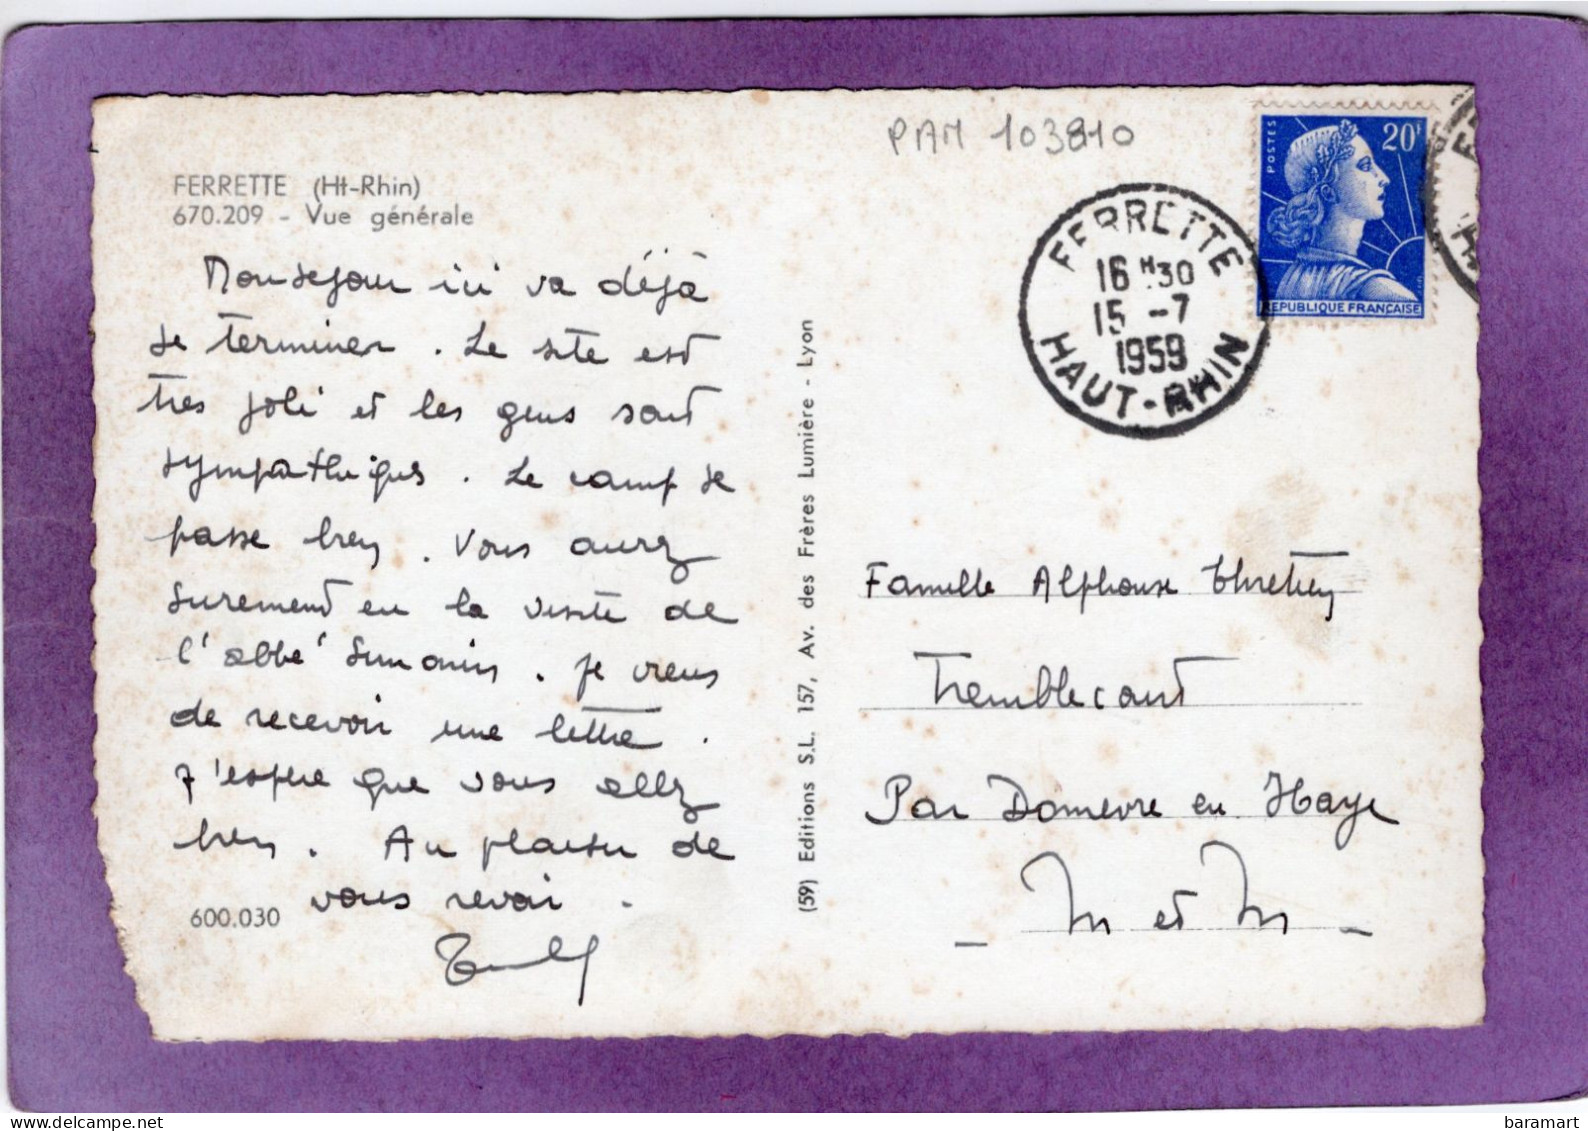 PAM 103810
FERRETTE (Ht-Rhin)
670.209 - Vue générale
Mon séjour ici va déjà
se terminer. Le site est
très joli et les gens sont
sympathiques. Le camp se
passe bien. Vous aurez
surement eu la visite de
l'abbé. Je viens
de recevoir une lettre.
J'espère que vous allez
bien. Au plaisir de
vous revoir.
600.030
(59) Editions S.L. 157, Av. des Frères Lumière - Lyon
FERRETTE
16 H 30
15 -7
1959
HAUT-RHIN
POSTES
20F
REPUBLIQUE FRANÇAISE
Famille Alphonse Thretien
Tremblecourt
Par Domevre en Haye
- M et M -
baramart